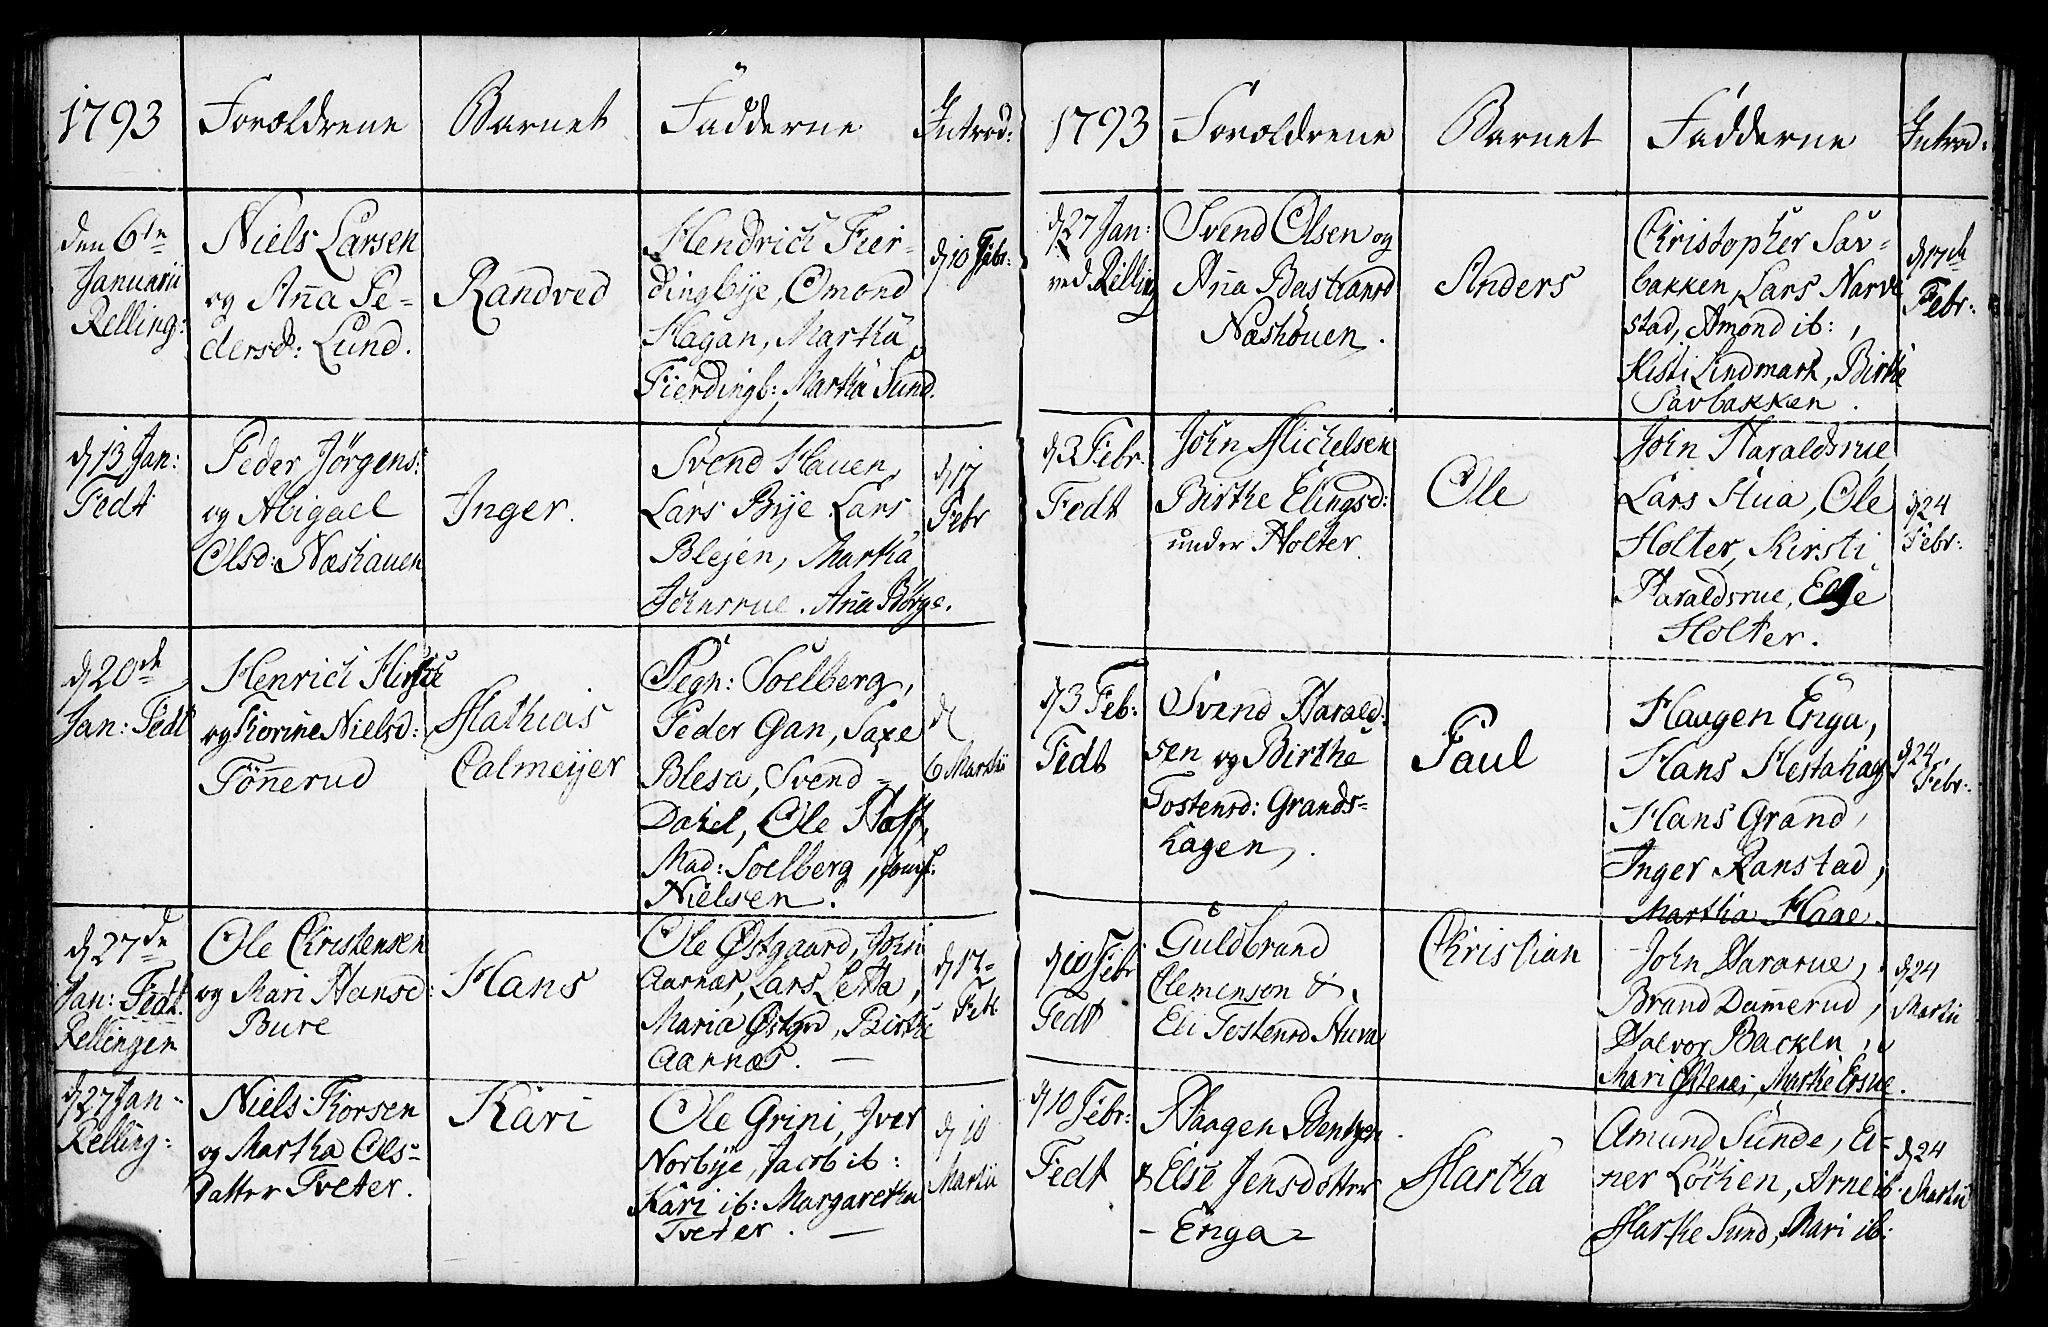 1793
Forældrene
Barnet
Fadderne
Introd:
den 6te
Januarii
Relling:
Niels Larsen
og Anna Pe-
dersd: Lund.
Randved
Hendrich Fier-
dingbye, Omond
Hagan, Martha
Fierdingb:, Martha Sund.
d 10 Febr:
d 13 Jan:
Fedt
Peder Jörgens:
og Abigael
Olsd: Næshauen
Inger.
Svend Hauen,
Lars Bye Lars
Blejen, Martha
Johnsrue. Anna Börge.
d 17
Febr
d 20de
Jan: Fedt
Henrich
og Thorine Nielsd:
Tönnerud
Mathias
Calmeijer
Regn: Soelberg,
Peder Gan, Saxe
Blesa, Svend
Dahel, Ole
Mad: Soelberg, Jomf.
Nielsen.
d
6 Martii
d 27de
Jan: Fedt.
Rellingen
Ole Christensen
og Mari Hansd:
Bure
Hans
Ole Østgaard, John
Aarnæs, Lars Letta,
Maria Østgrd, Birthe
Aarnæs. —
d 17
Feb
d 27 Jan
Relling:
Niels Thorsen
og Martha Ols-
datter Tveter.
Kari
Ole Grini, Iver
Norbye, Jacob ib:
Kari ib: Margaretha
Tveter. —
d 10
Martii
1793
Forældrene
Barnet
Fadderne
Introd:
d 27 Jan:
ved Relling
Svend Olsen og
Anna Bastiansd
Næshouen.
Anders
Christopher Sav-
bakken, Lars Narve
stad, Amond ib:,
Kisti Lindmark, Birthe
Savbakken.
d 17de
Febr:
d 2 Febr.
Fedt
John Michelsen
Birthe Elingsd:
under Holter.
Ole
John Haraldsrue,
Lars Hua, Ole
Holter, Kirsti
Haraldsrue, Else
Holter.
d 24
Febr:
d 3 Feb:
Fedt
Svend Harald:
sen og Birthe
Tostensd: Grands-
hagen.
Paul
Haagen Enga,
Hans Hestahag
Hans Grand,
Inger Ranstad,
Martha Hage.
d 24
Febr:
d 10 Febr
Fedt
Guldbrand
Clemensen &
Eli Tostensd Huva
Christian
John Hararue,
Brand Damerud,
Halvor Backen,
Mari Marthe
d 24
Martii
d 10 Febr:
Fedt
Haagen Bentsen
& Else Jensdotter
- Enga -
Martha
Amund Sunde, Ei-
ner Löchen, Arne ib.
Marthe Sund, Mari ib:
d 24
Martii